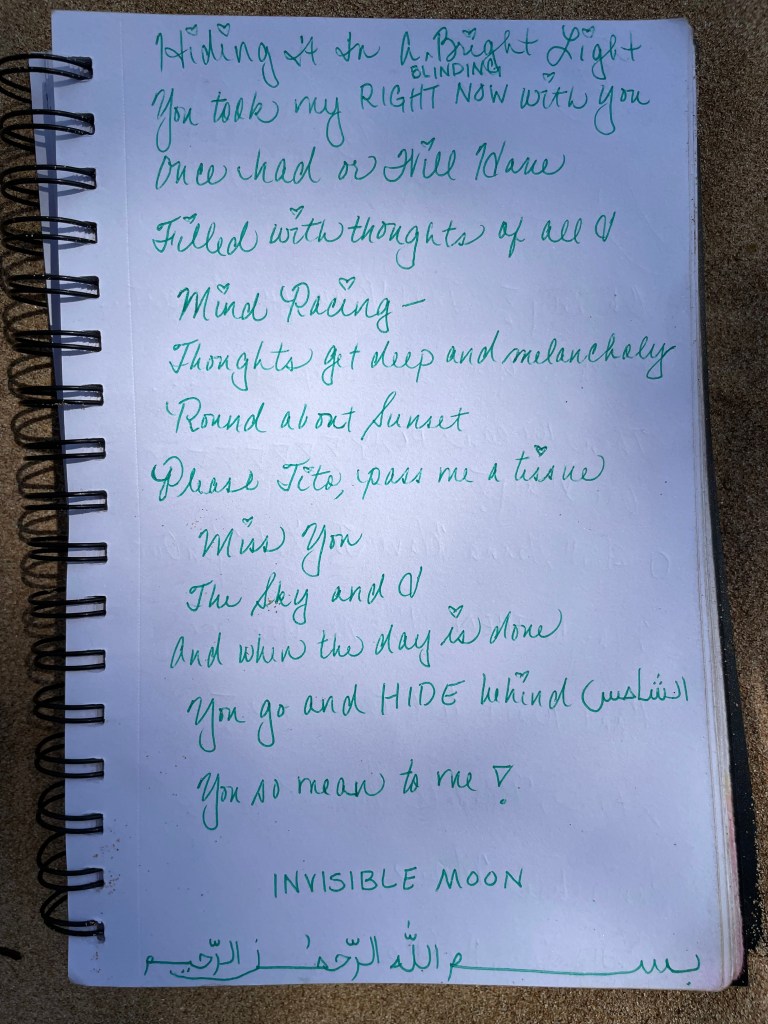 Hiding it In A Bright Light
BLINDING
You took my RIGHT NOW with you
Once had or Will Have
Filled with thoughts of all I
Mind Racing –
Thoughts get deep and melancholy
'Round about Sunset
Please Tito, pass me a tissue
Miss You
The Sky and I
And when the day is done
You go and HIDE behind الشامس
You so mean to me !
INVISIBLE MOON
بسم اللّه الرّحمٰن الرّحيم